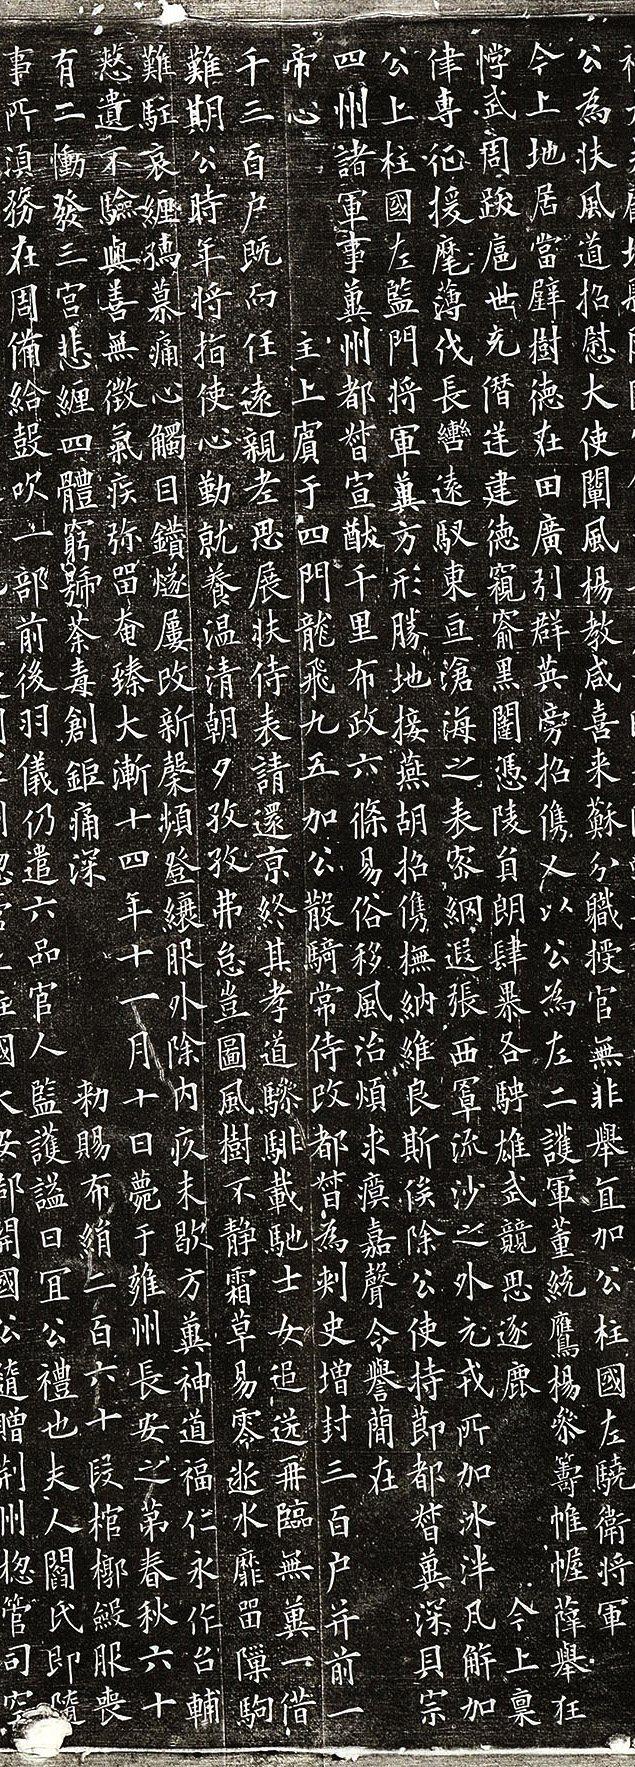 公為扶風道招慰大使闡風楊教咸喜来蘇分職授官無非舉直加公柱國左驍衛將軍
今上地居當璧樹德在田廣引群英旁招儁乂以公為左二護軍董統鷹楊參籌帷幄薛舉狂
悖武周跋扈世充僣逆建德窺窬黑闥憑陵負朗肆暴各騁雄武競思逐鹿 今上稟
律專征援麾薄伐長轡遠馭東亘滄海之表密網遐張西罩流沙之外元戎所加冰泮凡解加
公上柱國左監門将軍冀方形勝地接燕胡招儁撫納維良斯俟除公使持節都督冀深貝宗
四州諸軍事冀州都督宣猷千里布政六條易俗移風治煩求瘼嘉聲令譽簡在
帝心 主上賓于四門龍飛九五加公散騎常侍改都督為刺史增封三百户并前一
千三百户既向任遠親老思展扶侍表請還京終其孝道驂騑載馳士女追送再臨無冀一借
難期公時年將指使心勤就養温清朝夕孜孜弗怠豈圖風樹不静霜草易零逝水靡留隟駒
難駐哀纏孺慕痛心觸目鑽燧屢改新穀頻登纕服外除内疚未歇方冀神道福仁永作台輔
憖遺不驗與善無徵氣疾弥留奄臻大漸十四年十一月十日薨于雍州長安之第春秋六十
有二慟發三宫悲纏四體窮號荼毒創鉅痛深 勑賜布絹二百六十段棺槨緞服喪
事所湏務在周備給鼓吹一部前後羽儀仍遣六品官人監護謚曰冝公禮也夫人閻氏即隨
國大安郡開國公隨贈荆州揔管司空